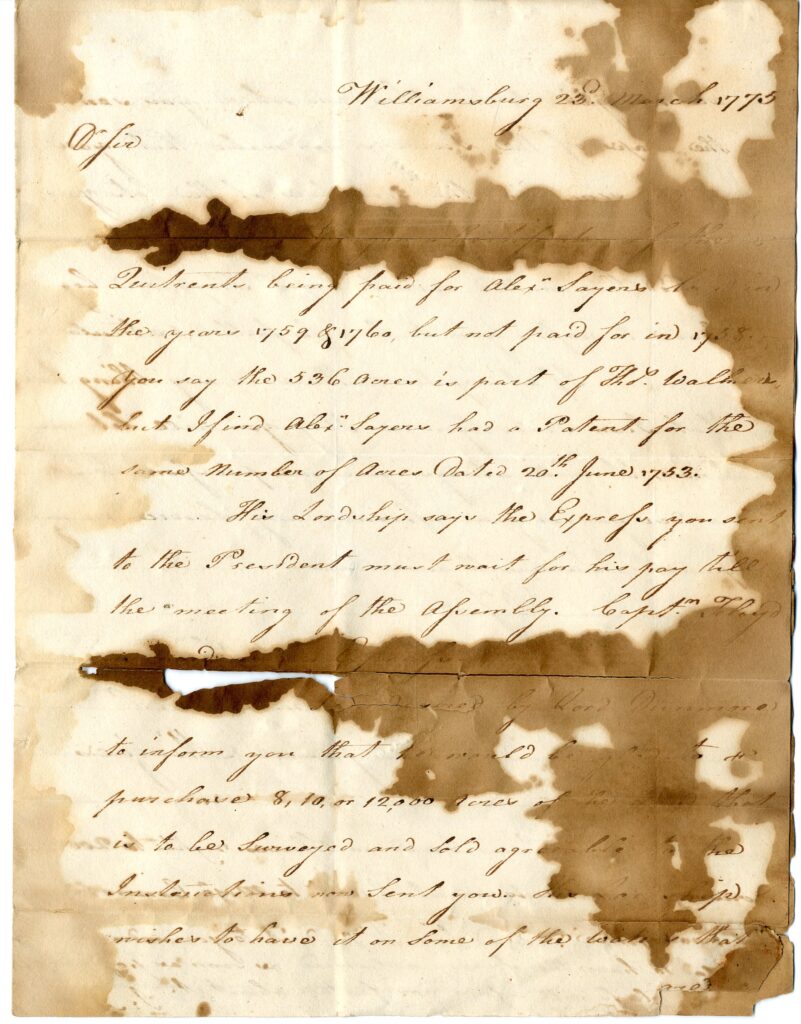 Williamsburg 23d. March 1775
Dr Sir
Quitrents being paid for Alexr. Sayers
the years 1759 & 1760, but not paid for in 1758.
you say the 536 Acres is part of Thos. Walkers
but I find Alexr. Sayers had a Patent for the
same Number of Acres dated 20th. June 1753.
His Lordship says the Express you sent
to the President must wait for his pay till
the meeting of the Assembly. Captn. Floyd
by Lord
to inform you that he would be to
purchase 8, 10, or 12,000 Acres of that
is to be Surveyed and sold agreeable to the
Instructions now sent you.
wishes to have it on some of the that